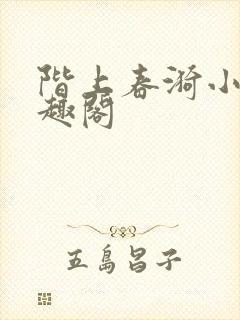 階上春漪小
趣閣
五島昌子